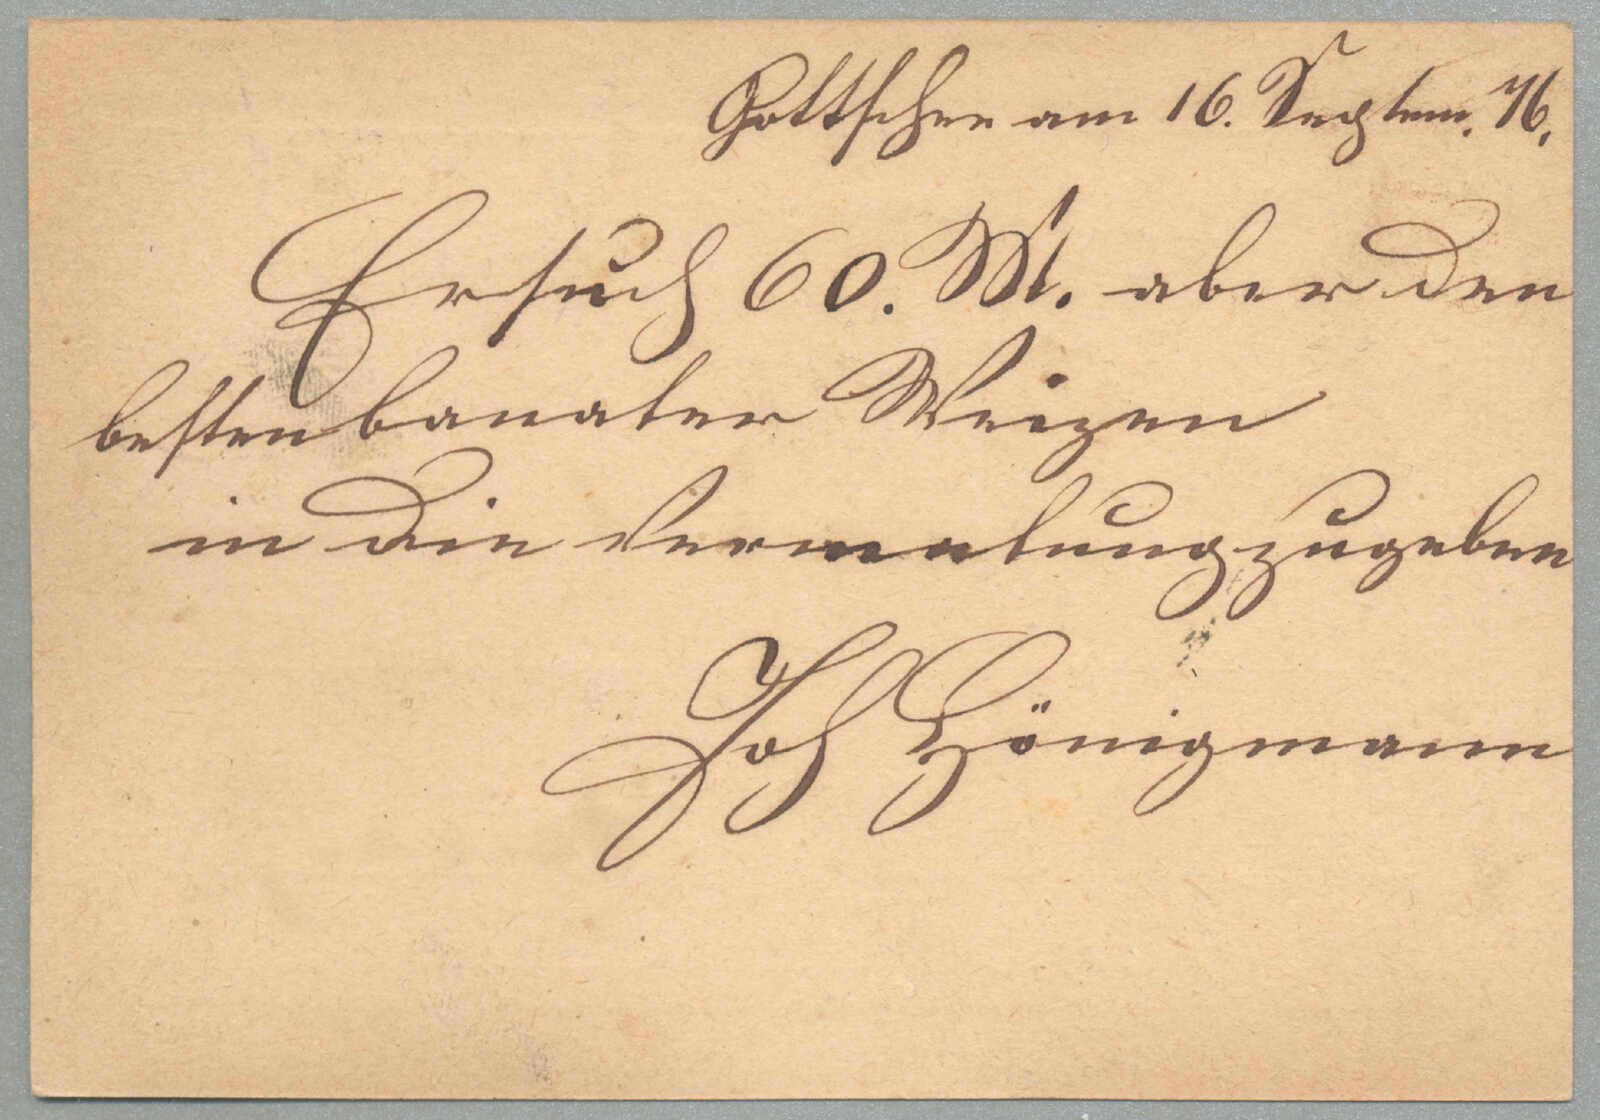 Gottschee am 16. Septem. 76.
Ersuch 60. M. aber den
besten banater Weizen
in die Vermalung zugeben
Joh Hönigmann